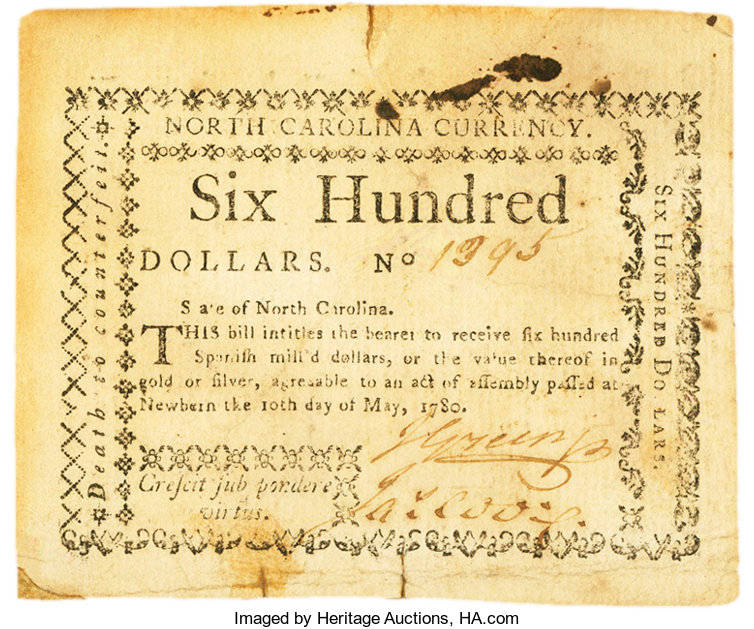 NORTH CAROLINA CURRENCY.
Six Hundred
DOLLARS. No 1995
S ate of North Carolina.
THIS bill intitles the bearer to receive ſix hundred
Spaniſh mill'd dollars, or the value thereof in
gold or ſilver, agreeable to an act of aſſembly paſſed at
Newbern the 10th day of May, 1780.
Creſcit ſub pondere
virtus.
Death to counterfeit.
SIX HUNDRED DOLLARS.
Imaged by Heritage Auctions, HA.com